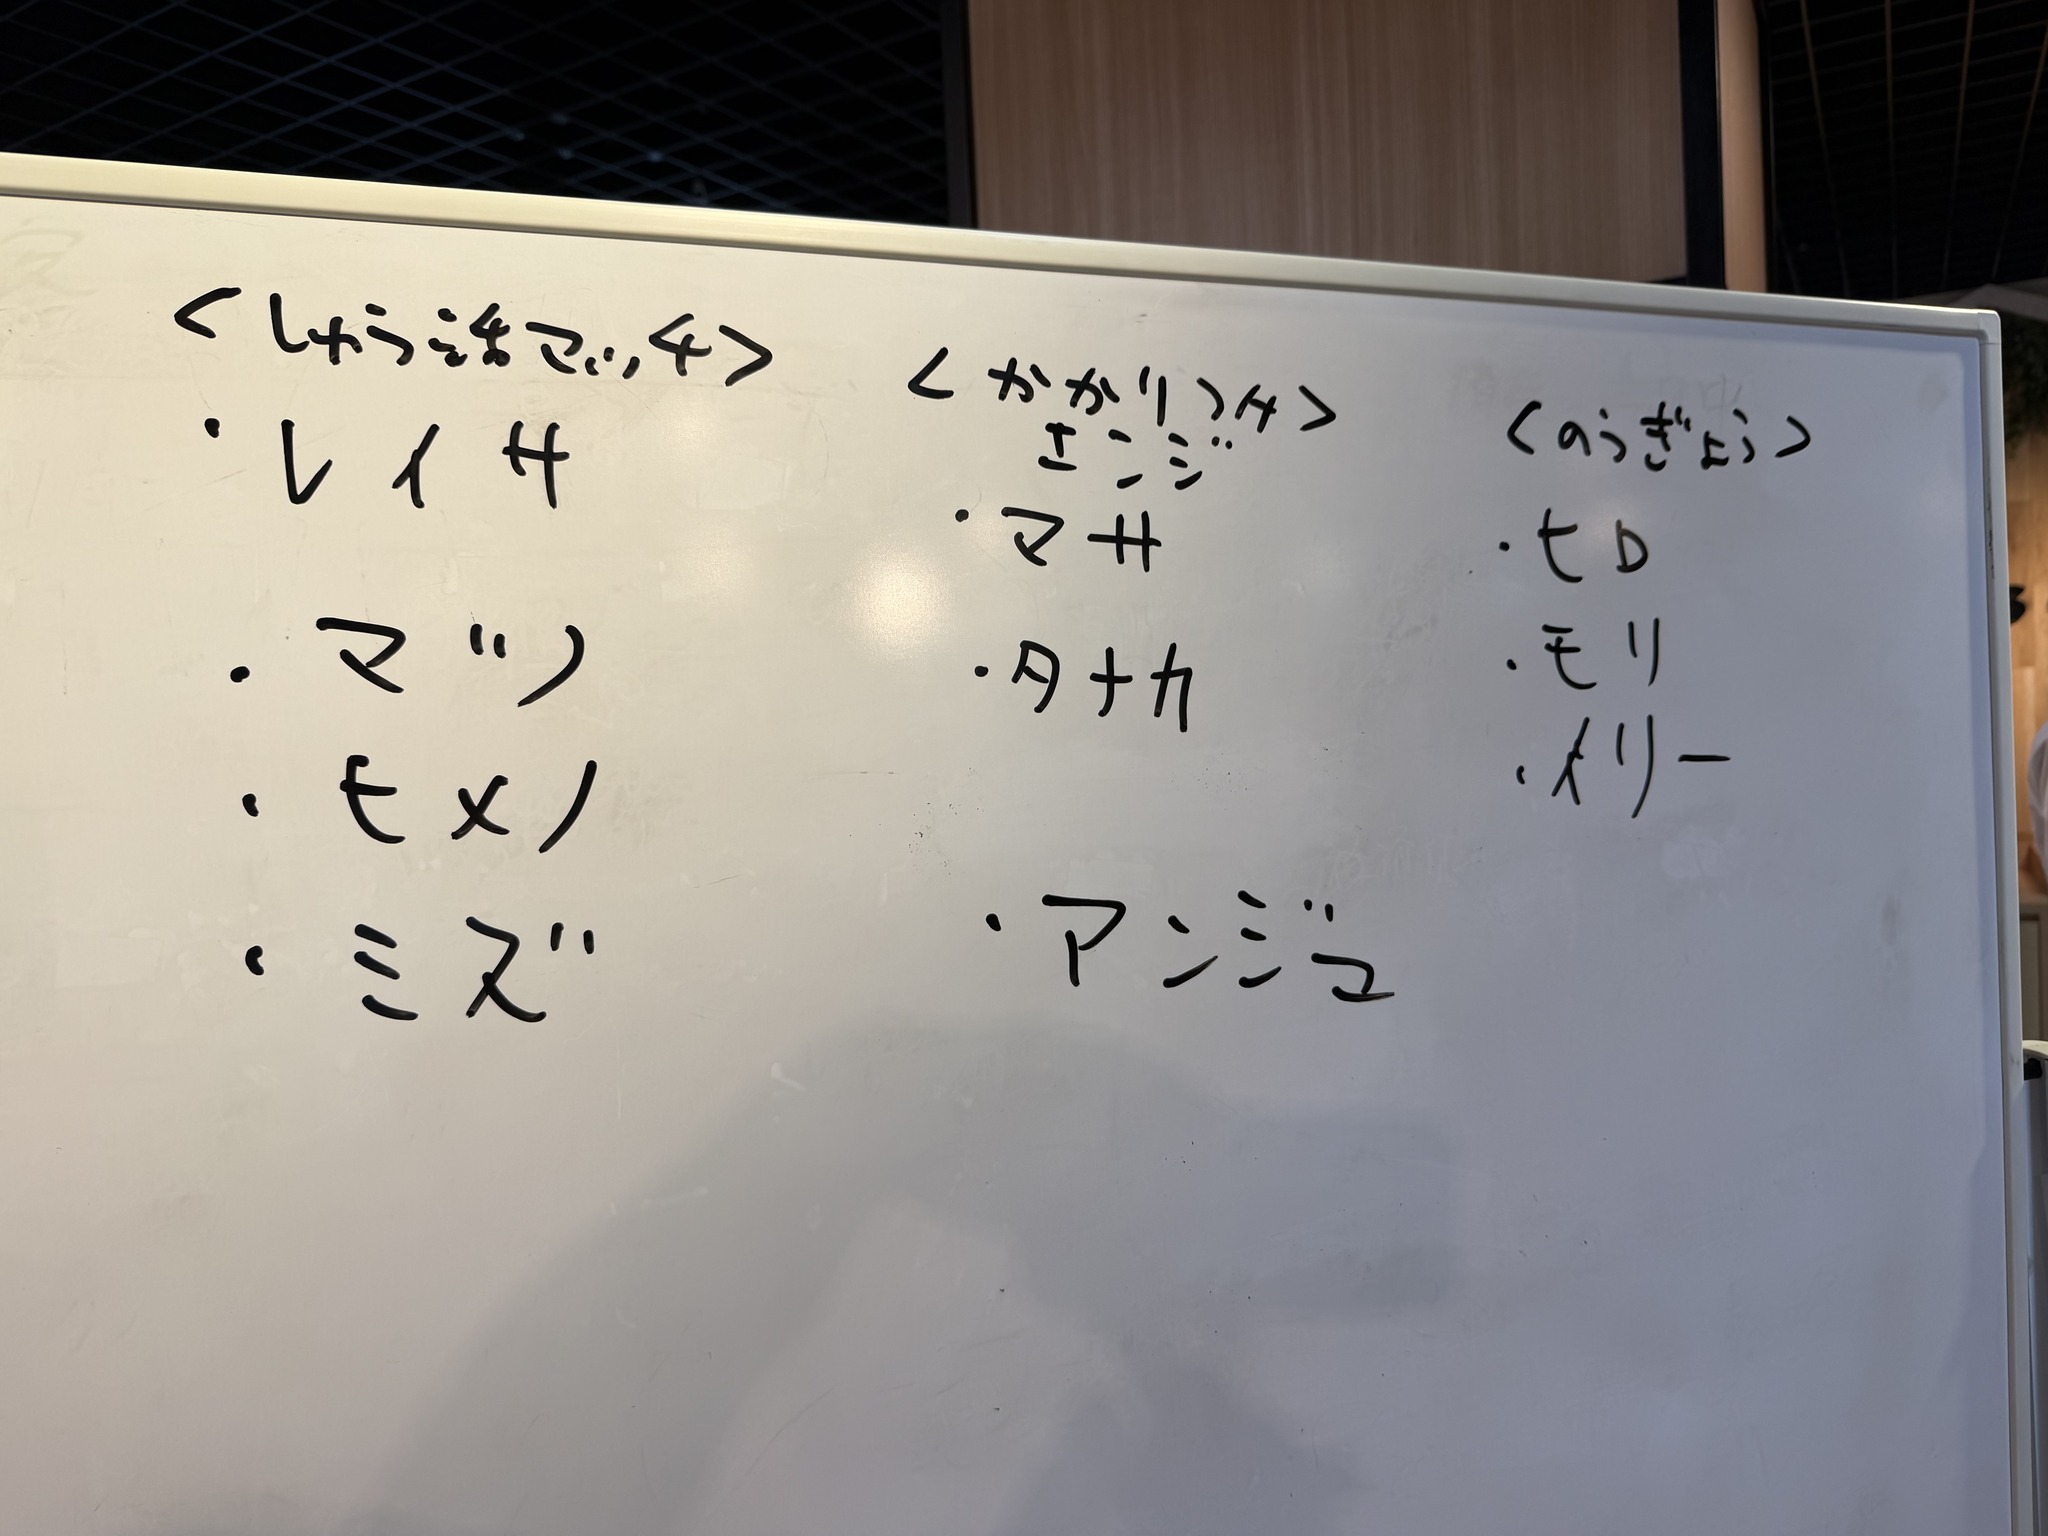 <しゅう活マッチ>
・レイサ
・マツ
・モメノ
・ミズ
<かかりつけ>
エンジ
・マサ
・タナカ
・アンジュ
<のうぎょう>
・ヒロ
・モリ
・メリー